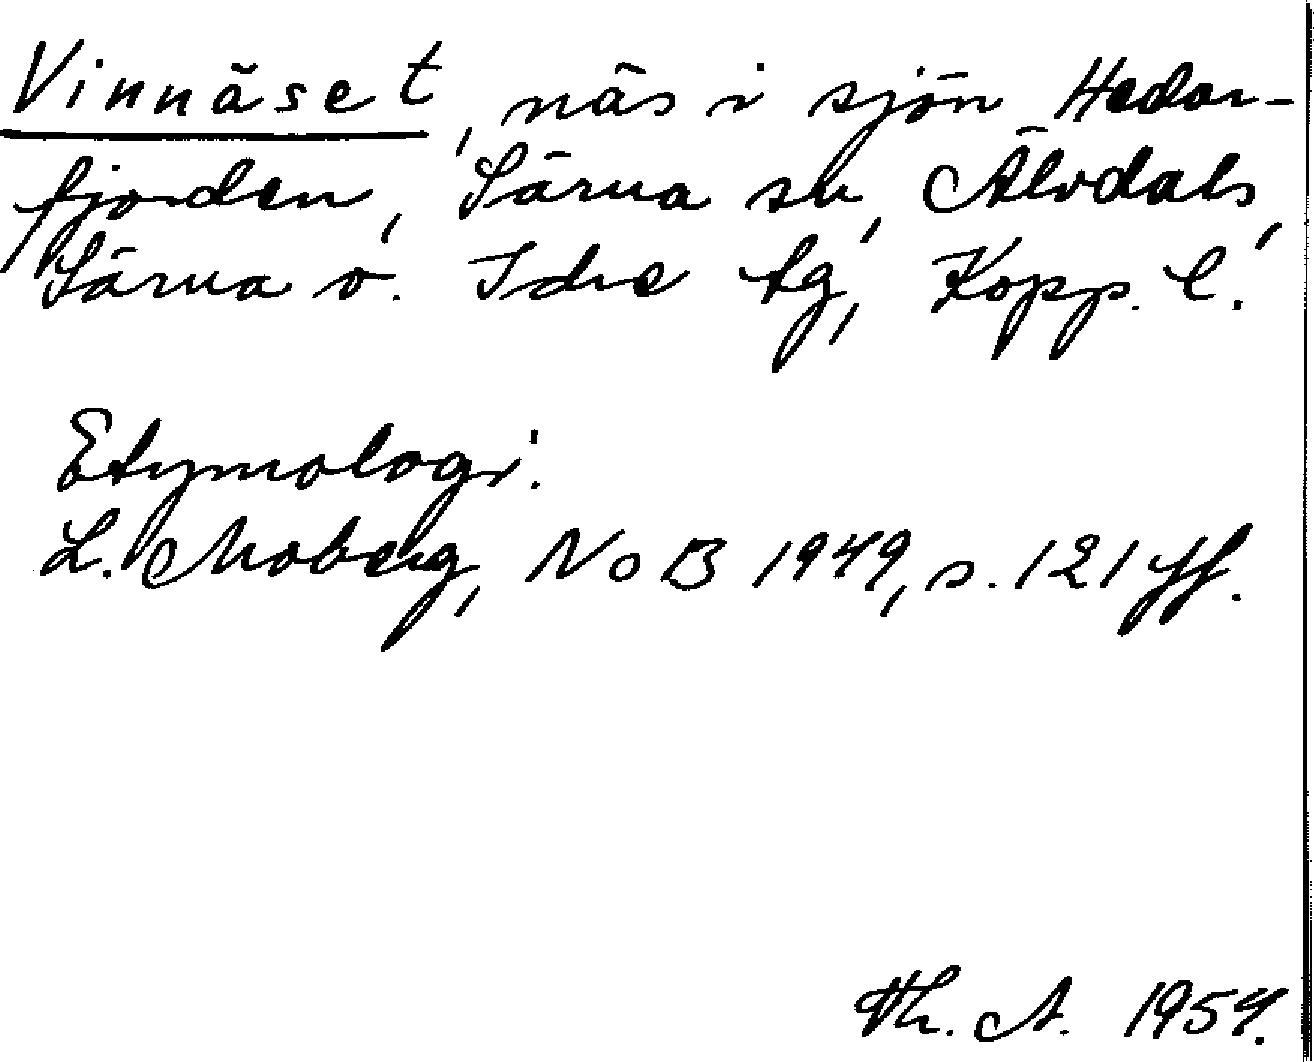 Vinnäset, näs i sjön Hedar-
fjorden, Särna sn, Älvdals,
Särna o. Idre tg, Kopp. l.
Etymologi:
L. Moberg, NoB 1949, s. 121 ff.
Th. A. 1954.